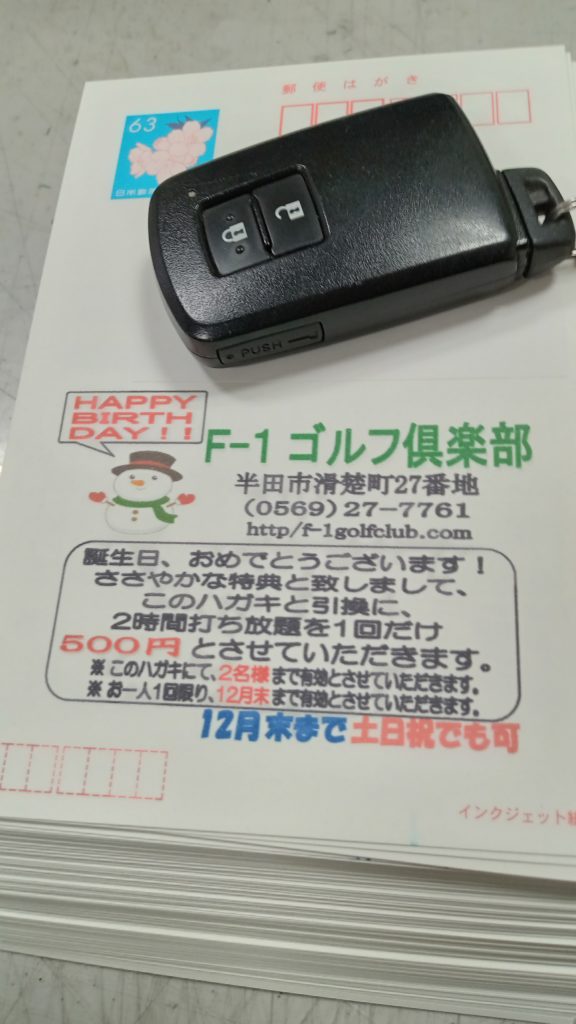 郵便はがき
63
日本郵便
PUSH
HAPPY
BIRTH
DAY!!
F-1ゴルフ倶楽部
半田市滑楚町27番地
(0569)27-7761
http/f-1golfclub.com
誕生日、おめでとうございます!
ささやかな特典と致しまして、
このハガキと引換に、
2時間打ち放題を1回だけ
500円とさせていただきます。
※このハガキにて、2名様まで有効とさせていただきます。
※お一人1回限り、12月末まで有効とさせていただきます。
12月末まで土日祝でも可
インクジェット紙